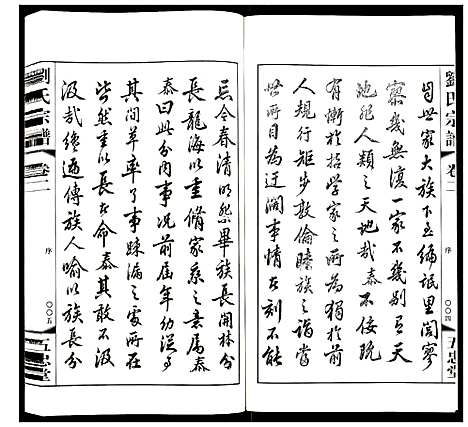 劉氏宗譜
卷二
序
〇〇四
五忠堂
自世家大族下至編氓里閭寥
寥幾無復一家不幾別有天
地非人類之天地哉泰不佞既
有慚於哲學家之所為獨於前
人規行矩步敦倫睦族之諧當
世所目為迂濶事情在刻不能
忘今春清明祭畢族長開林分
長龍海以重脩家乘之意屬泰
泰曰此分內事況前屆年幼從事
其間草率了事疎漏之處所在
皆然重以長者命泰其敢不汲
汲哉繼遍傳族人喻以族長分
劉氏宗譜
卷二
序
〇〇五
五忠堂